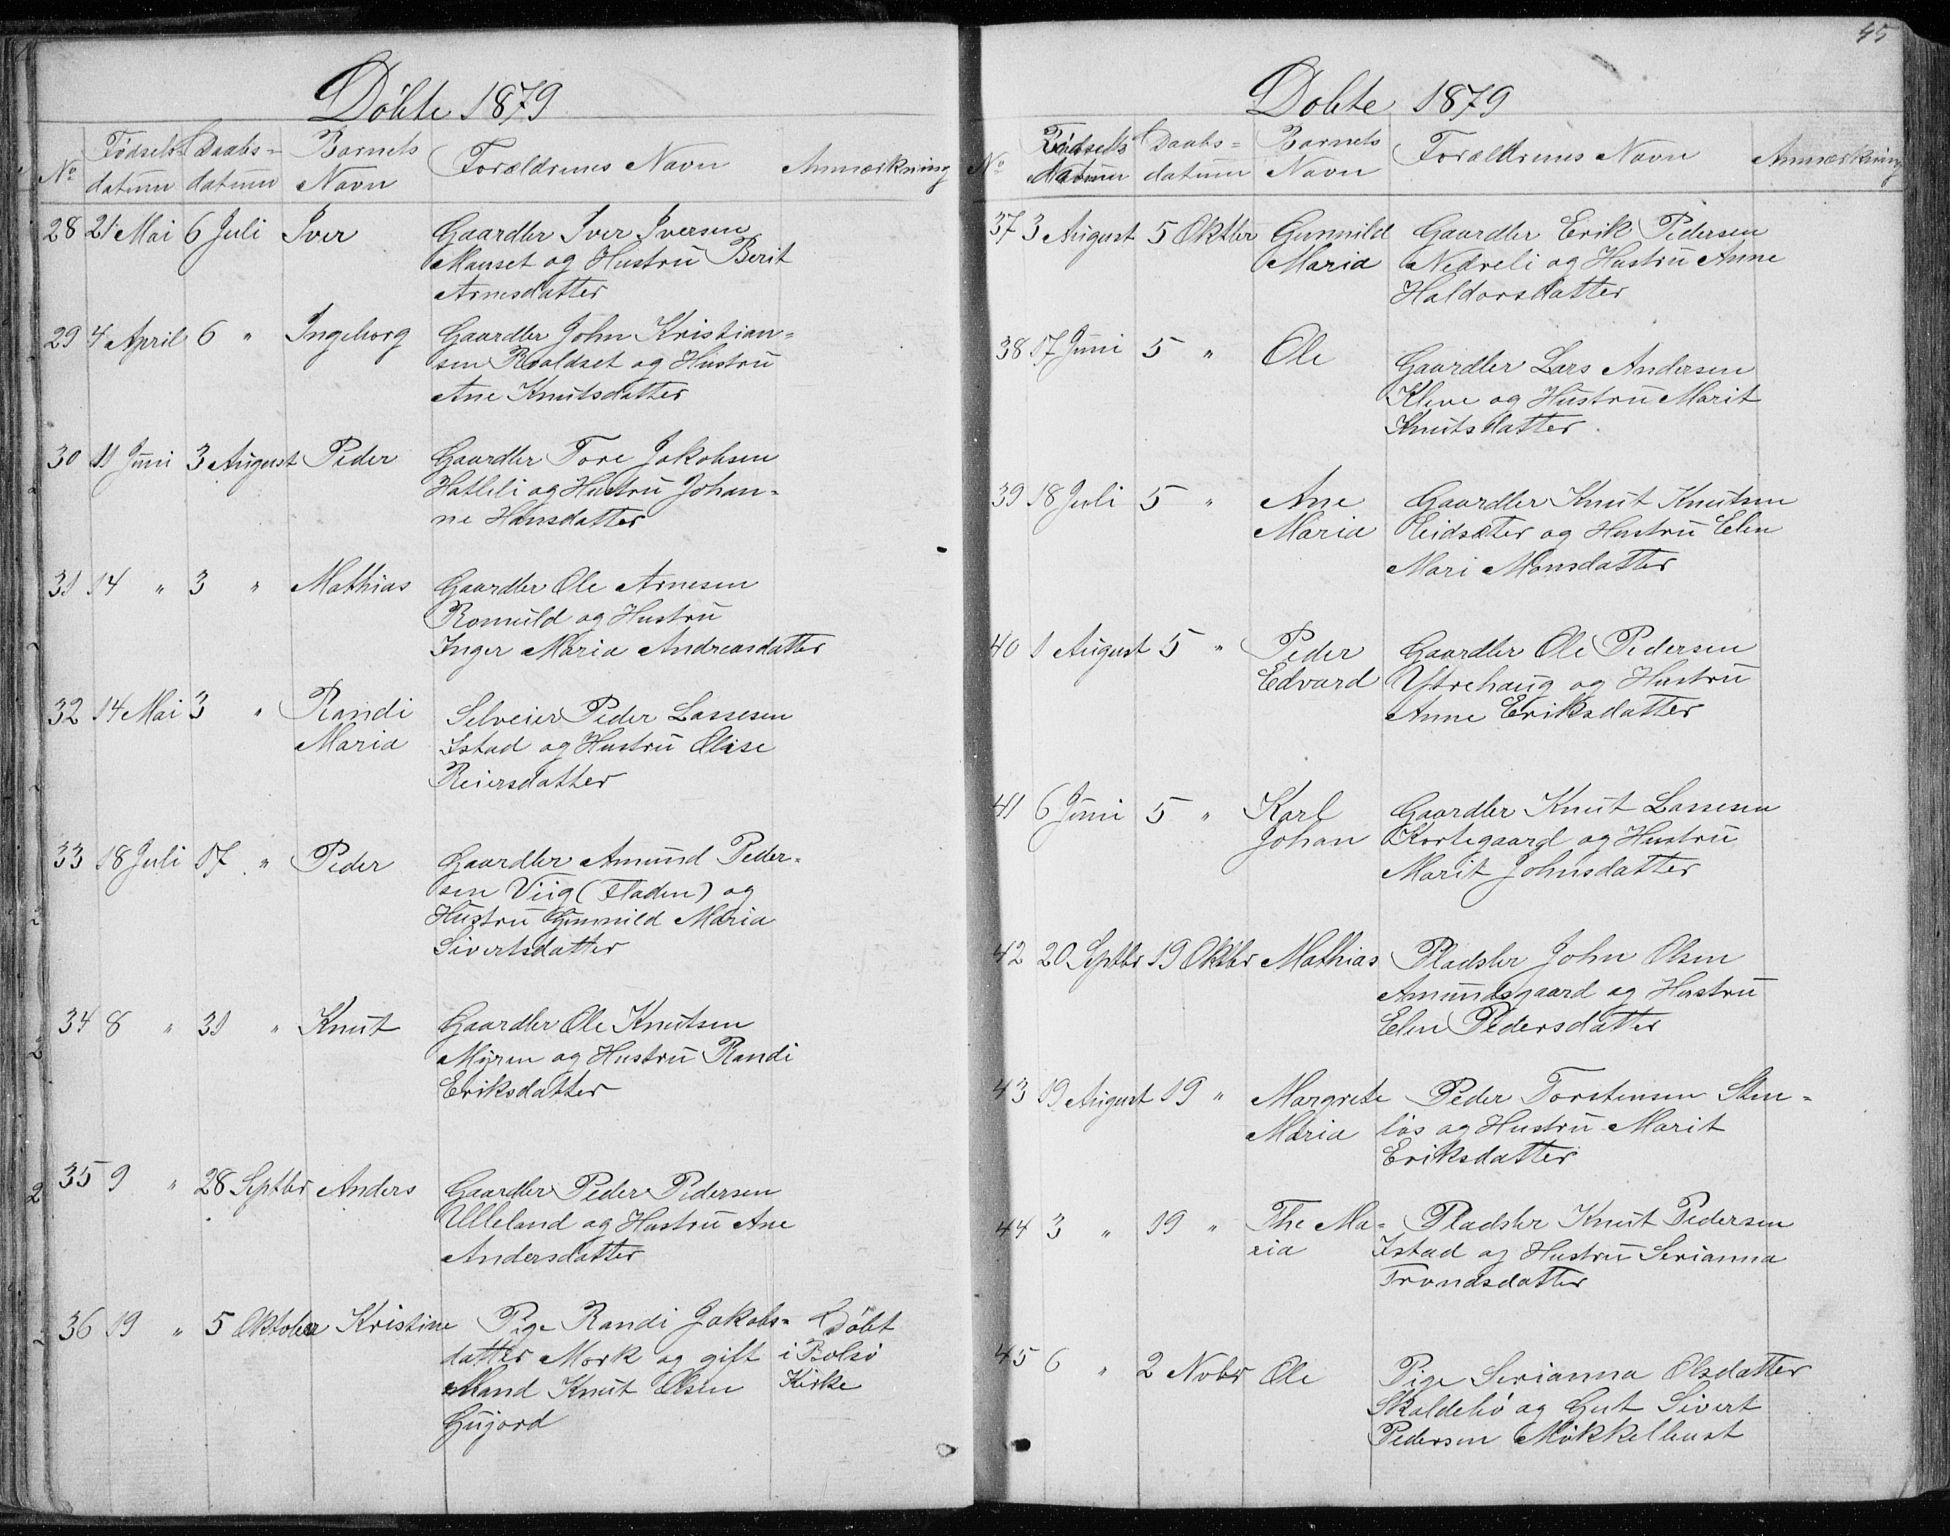 Döbte 1879
No Fødsels- Daabs- Barnets Forældrenes Navn Anmærkning
datum datum Navn
28 21 Mai 6 Juli Iver Gaardbr Iver Iversen
Mauset og Hustru Berit
Arnesdatter
29 4 April 6 " Ingeborg Gaardbr John Kristian-
sen Roaldset og Hustru
Ane Knutsdatter
30 11 Juni 3 August Peder Gaardbr Tore Jakobsen
Hatleli og Hustru Johan-
ne Hansdatter
31 14 " 3 " Mathias Gaardbr Ole Arnesen
Romuld og Hustru
Inger Maria Andreasdatter
32 14 Mai 3 " Randi Selveier Peder Lassesen
Maria Istad og Hustru Olise
Reiersdatter
33 18 Juli 17 " Peder Gaardbr Amund Peder-
sen Viig (Fladen) og
Hustru Gunnild Maria
Sivertsdatter
34 8 " 31 " Knut Gaardbr Ole Knutsen
Myren og Hustru Randi
Eriksdatter
35 9 " 28 Septbr Anders Gaardbr Peder Pedersen
Ulleland og Hustru Ane
Andersdatter
36 19 " 5 Oktober Kristine Pige Randi Jakobs- Döbt
datter Mork og gift i Bolsö
Mand Knut Olsen Kirke
Gujord
45
Dobte 1879
No Fødsels Daabs- Barnets Forældrenes Navn Anmærkning
datum datum Navn
37 3 August 5 Oktbr Gunnild Gaardbr Erik Pedersen
Maria Nedreli og Hustru Anne
Haldorsdatter
38 17 Juni 5 " Ole Gaardbr Lars Andersen
Kleve og Hustru Marit
Knutsdatter
39 18 Juli 5 " Ane Gaardbr Knut Knutsen
Maria Eidsæter og Hustru Elen
Mari Monsdatter
40 1 August 5 " Peder Gaardbr Ole Pedersen
Edvard Ytrehaug og Hustru
Anne Eriksdatter
41 6 Juni 5 " Karl Gaardbr Knut Lassesen
Johan Kortegaard og Hustru
Marit Johnsdatter
42 20 Septbr 19 Oktbr Mathias Pladsbr John Olsen
Amundsgaard og Hustru
Elen Pedersdatter
43 19 August 19 " Margrete Peder Torstensen Sten-
Maria lös og Hustru Marit
Eriksdatter
44 3 " 19 " The Ma- Pladsbr Knut Pedersen
ria Istad og Hustru Serianna
Trondsdatter
45 6 " 2 Novbr Ole Pige Serianna Olsdatter
Skaldebö og Gut Sivert
Pedersen Mökkelbust